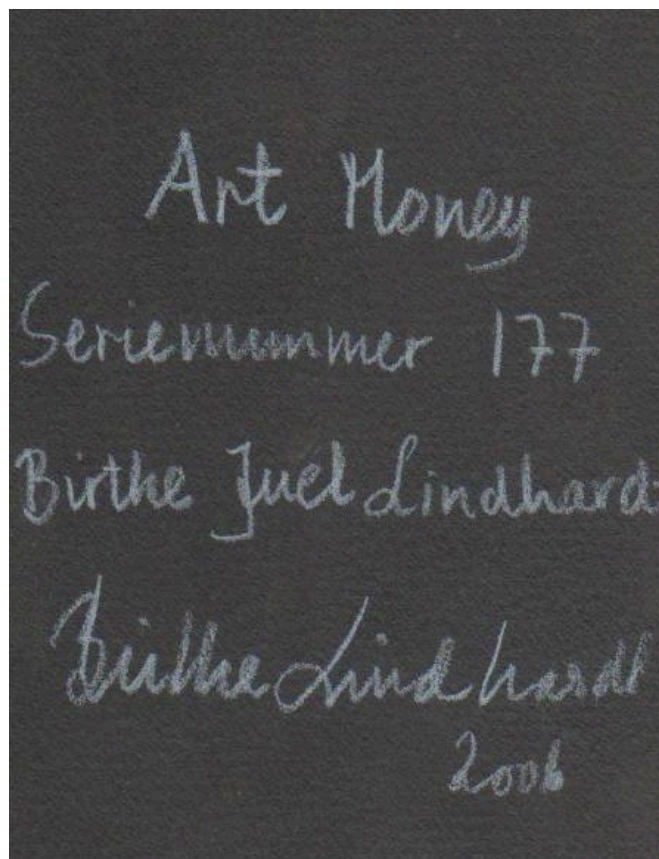 Art Money
Serienummer 177
Birthe Juel Lindhardt
Birthe Lindhardt
2006